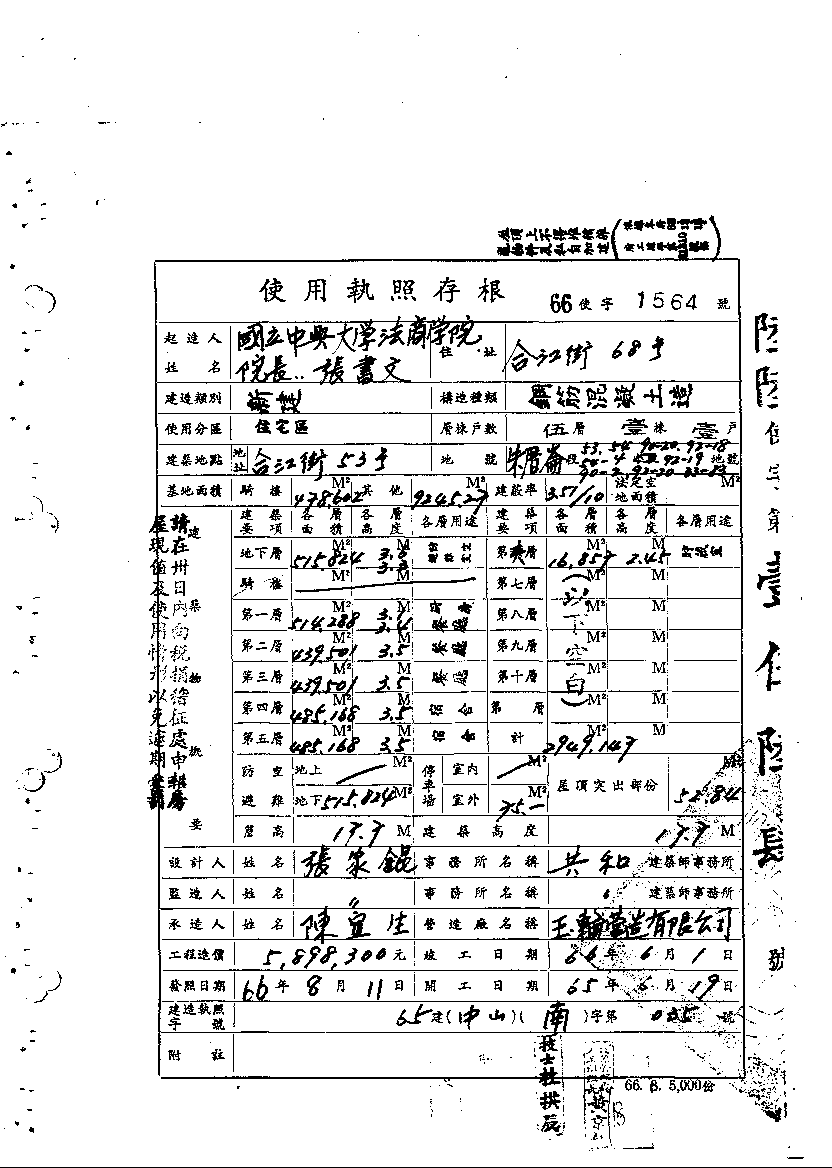 屋頂上不得堆積雜
使用執照存根 66使字 1564 號
起造人姓名 國立中興大学法商学院 院長..張書文 住址 合江街 68号
建造類別 新建 構造種類 鋼筋混凝土造
使用分區 住宅區 層棟戶數 伍層 壹棟 壹戶
建築地點 地址 合江街 53号 地號 朱厝崙段
基地面積 騎樓 478.602 M² 其他 9245.27 M² 建蔽率 3.57/10 法定空地面積 M²
建築要項 各層面積 各層高度 各層用途 建築要項 各層面積 各層高度 各層用途
地下層 515.824 M² M 第 層 16.857 M² 2.45 M
騎樓 M² M 第七層 M² M
第一層 514.288 M² M 第八層 M² M
第二層 439.501 M² 3.5 M 第九層 M² M
第三層 439.501 M² 3.5 M 第十層 M² M
第四層 485.168 M² 3.5 M 宿舍 第 層 M² M
第五層 485.168 M² 3.5 M 宿舍 計 2949.147 M² M
(以下空白)
建築物概要
防空避難 地上 M² 地下 515.824 M² 停車場 室內 M² 室外 75.— M² 屋頂突出部份 52.84 M²
簷高 17.7 M 建築高度 17.7 M
設計人 姓名 張家錕 事務所名稱 共和 建築師事務所
監造人 姓名 〃 事務所名稱 〃 建築師事務所
承造人 姓名 陳宜生 營造廠名稱 玉 營造有限公司
工程造價 5,898,300元 竣工日期 66年6月1日
發照日期 66年8月11日 開工日期 65年6月19日
建造執照字號 65建(中山)(南)字第 035 號
附註
66. 8. 5,000份
請在卅日內向稅捐稽征處申報房
屋現值及使用情形以免逾期受罰
陸陸使字第壹仟陸 長 號
技士杜拱辰